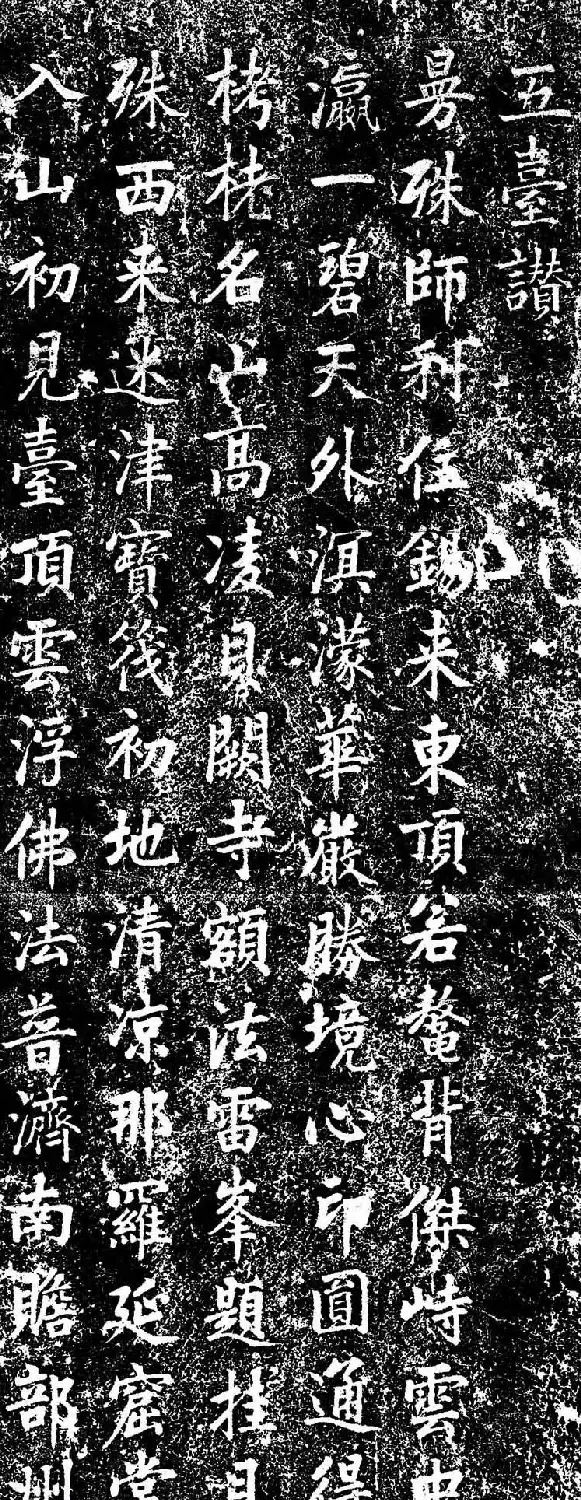 五臺讃
曼殊師利住錫来東頂若鼇背傑峙雲中
瀛一碧天外溟濛華嚴勝境心印圓通得
栲栳名山高凌見闕寺額法雷峯題挂月
殊西来迷津寶筏初地清凉那羅延窟堂
入山初見臺頂雲浮佛法普濟南贍部州